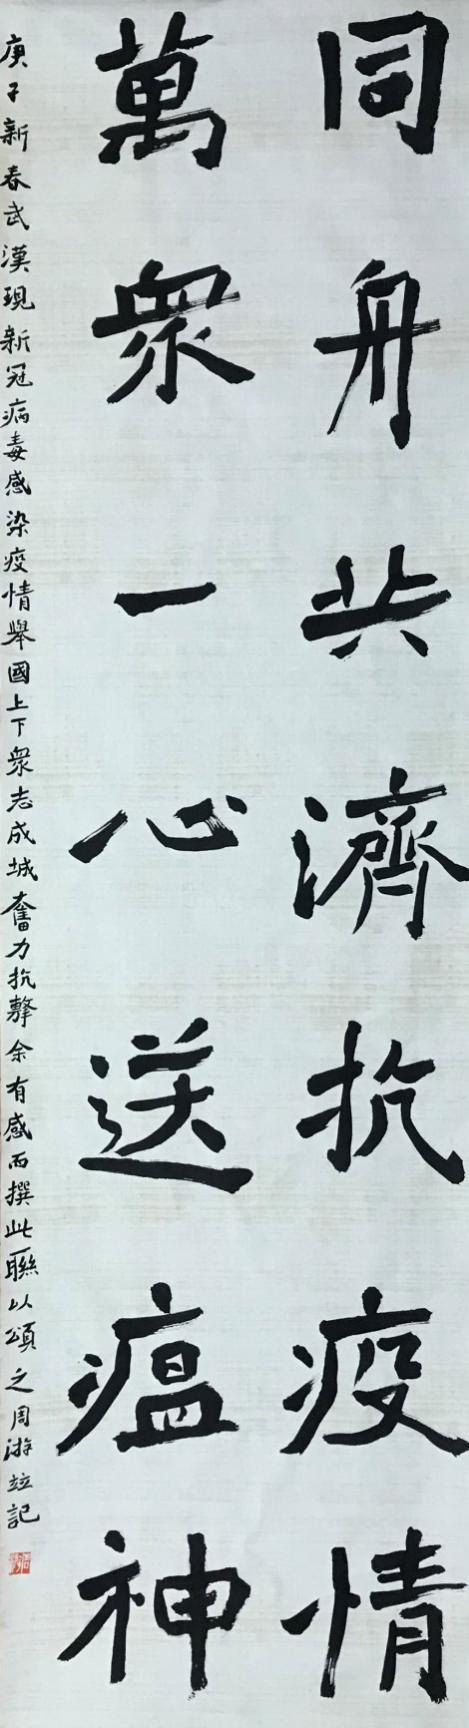 同舟共濟抗疫情
萬衆一心送瘟神
庚子新春武漢現新冠病毒感染疫情舉國上下衆志成城奮力抗擊余有感而撰此聯以頌之周游竝記